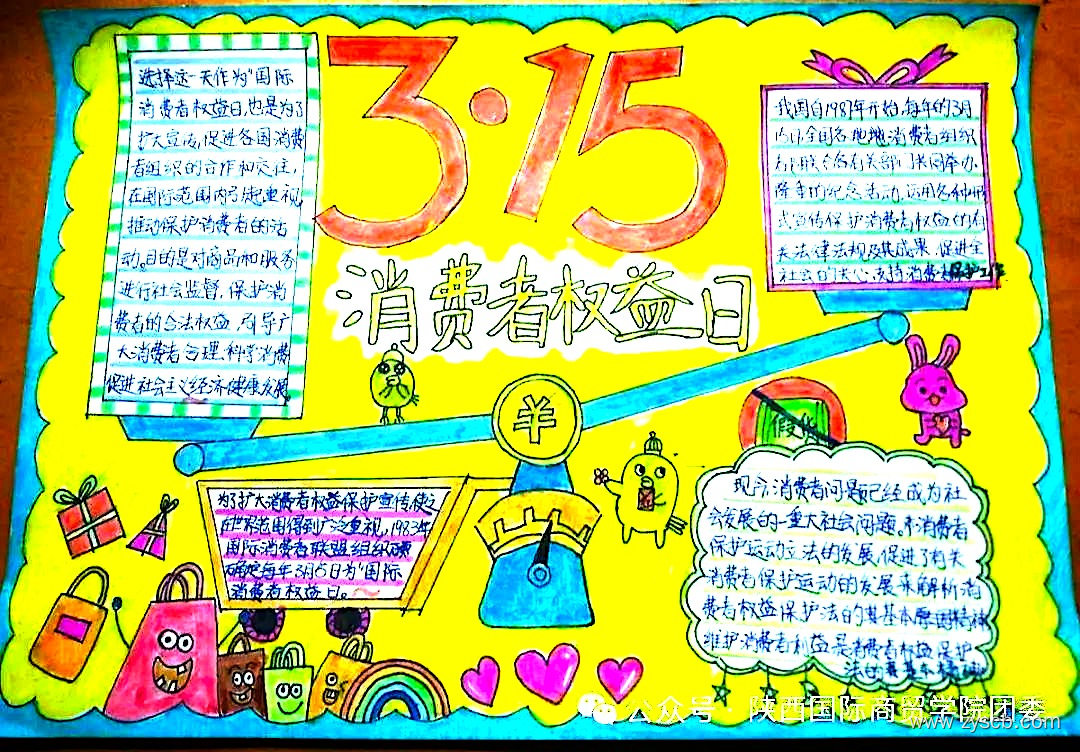 3·15
消费者权益日
选择这一天作为"国际
消费者权益日,也是为了
扩大宣传,促进各国消费
者组织的合作和交往,
在国际范围内引起重视,
推动保护消费者的活
动。目的是对商品和服务
进行社会监督,保护消
费者的合法权益,引导广
大消费者合理、科学消费
促进社会主义经济健康发展。
我国自1987年开始,每年的3月
15日,全国各地消费者组织
都联合各有关部门共同举办
隆重的纪念活动,运用各种形
式宣传保护消费者权益的有
关法律法规及其成果,促进全
社会的关心,支持消费者保护工作
羊
假
为了扩大消费者权益保护宣传,使之
在世界范围得到广泛重视,1983年
国际消费者联盟组织
确定每年3月15日为"国际
消费者权益日。
现今,消费者问题已经成为社
会发展的一重大社会问题,而消费者
保护运动立法的发展,促进了有关
消费者保护运动的发展,来解析消
费者权益保护法的其基本原因精神
维护消费者利益是消费者权益保护
法的其基本精神
公众号·陕西国际商贸学院团委
www.zyscb.com